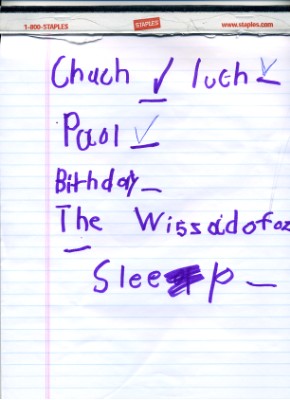 1-800-STAPLES STAPLES www.staples.com
Chuch ✓ luch ✓
Paol ✓
Bithday
The Wissadofoz
Sleep